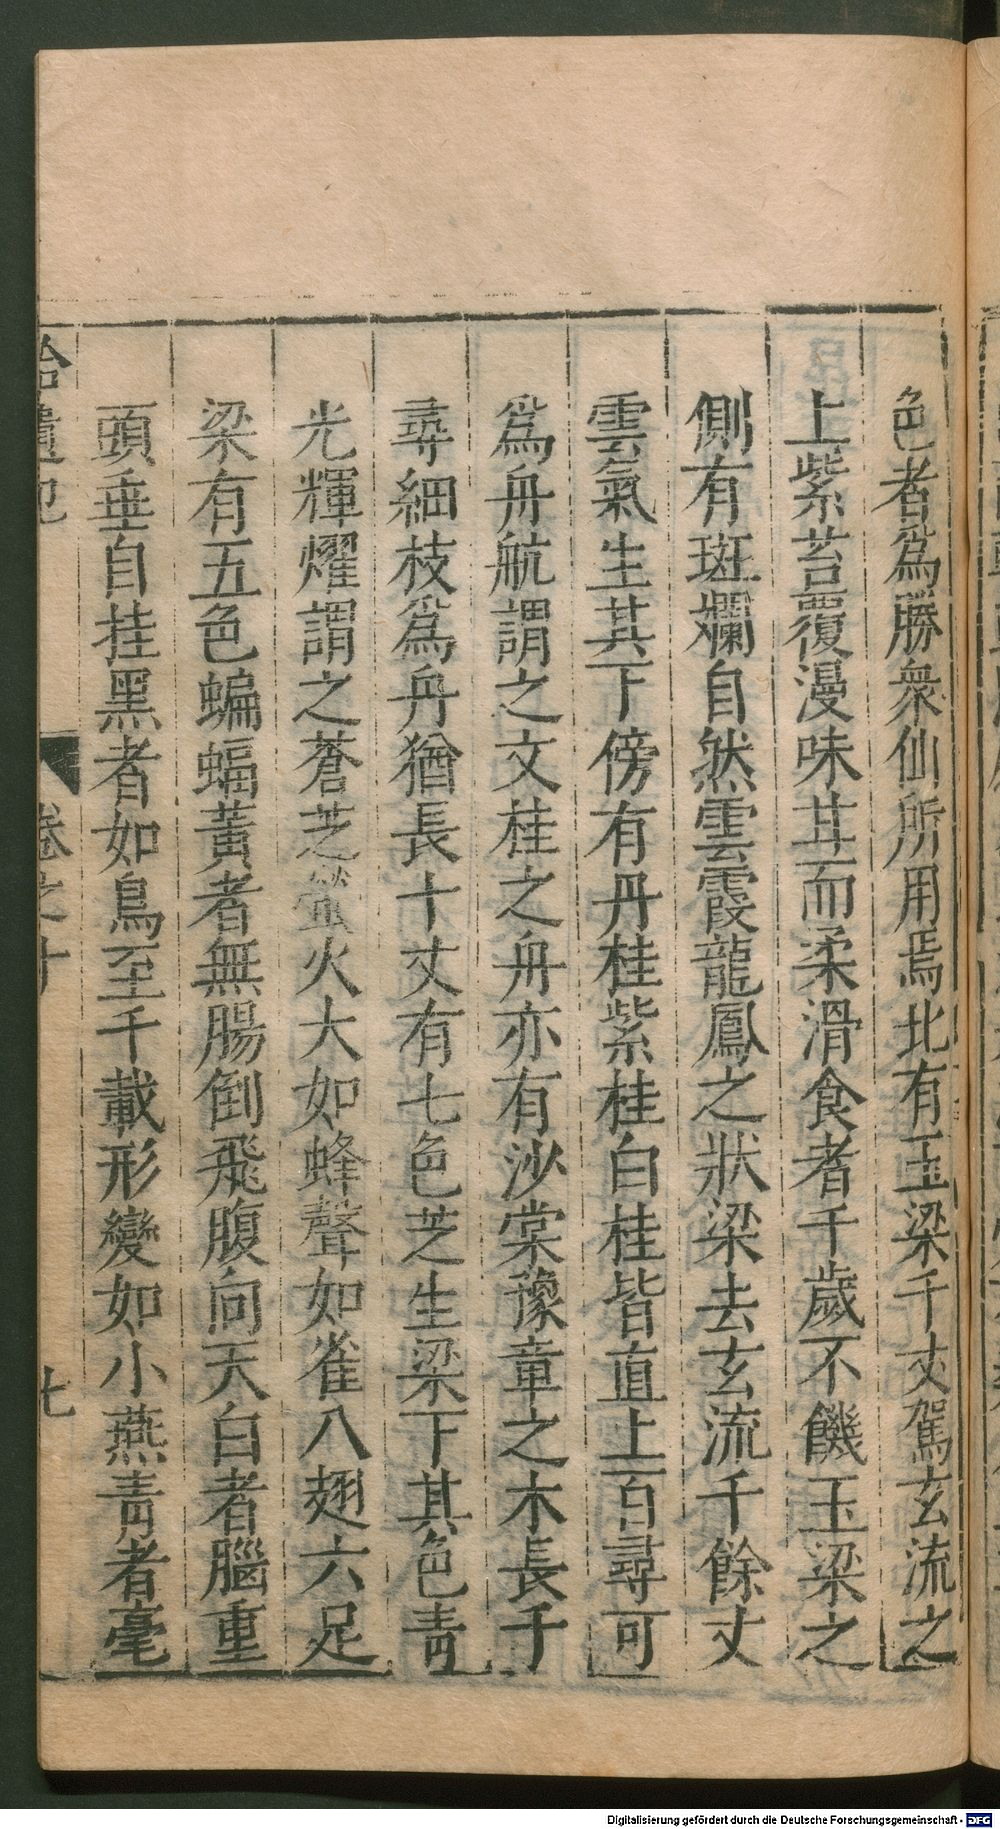 色者爲勝衆仙所用焉北有玉梁千丈駕玄流之
上紫苔覆漫味甘而柔滑食者千歲不饑玉梁之
側有斑斕自然雲霞龍鳳之狀梁去玄流千餘丈
雲氣生其下傍有丹桂紫桂白桂皆直上百尋可
爲舟航謂之文桂之舟亦有沙棠豫章之木長千
尋細枝爲舟猶長十丈有七色芝生梁下其色青
光輝燿謂之蒼芝螢火大如蜂聲如雀八翅六足
梁有五色蝙蝠黃者無腸倒飛腹向天白者腦重
頭垂自挂黑者如烏至千載形變如小燕青者毫
拾遺記 卷之十 七
Digitalisierung gefördert durch die Deutsche Forschungsgemeinschaft - DFG